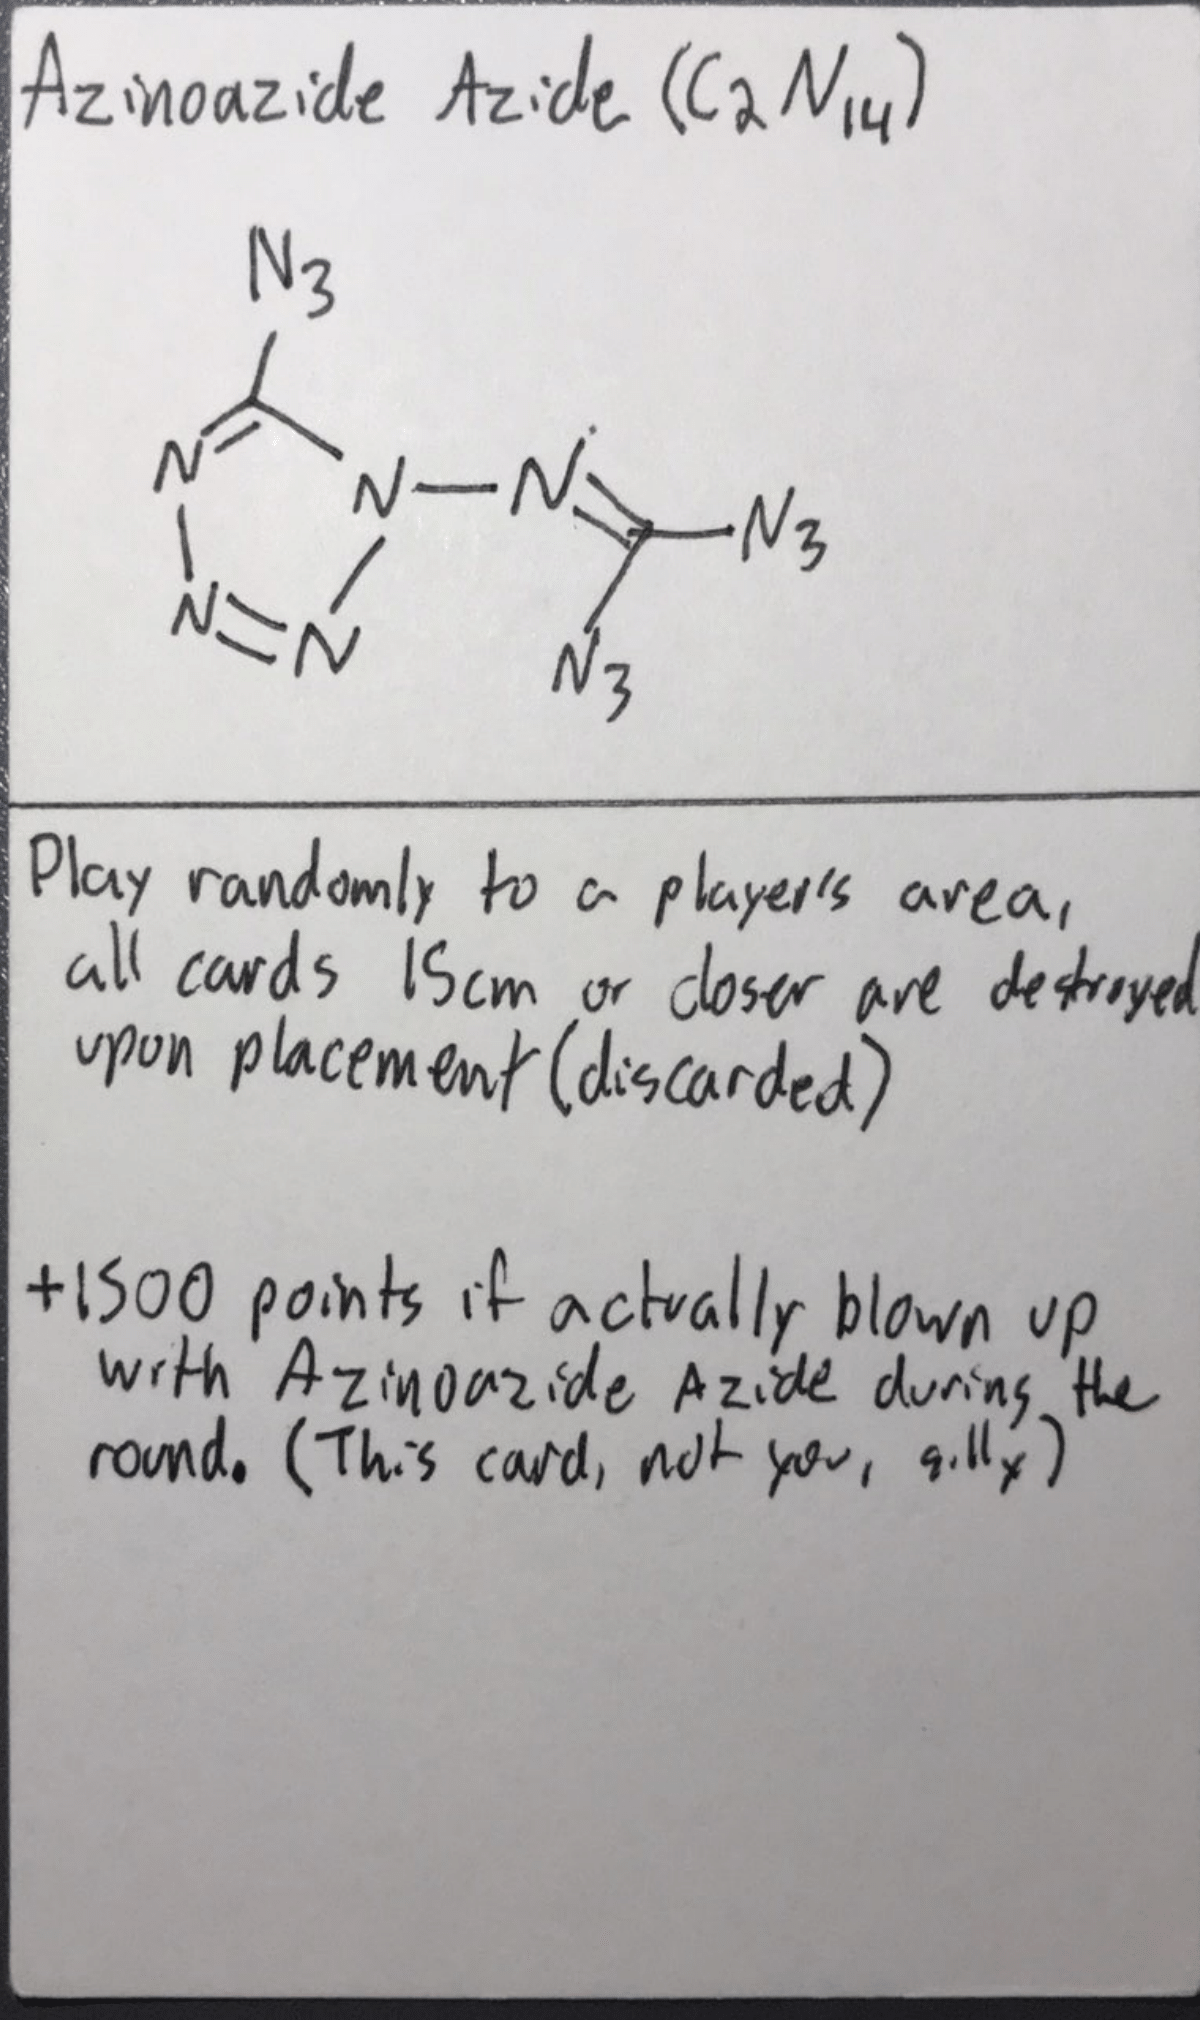 Azinoazide Azide (C2N14)
N3
N
N—N
N3
N=N
N3
Play randomly to a player's area,
all cards 15cm or closer are destroyed
upon placement (discarded)
+1500 points if actually blown up
with Azinoazide Azide during the
round. (This card, not you, silly)